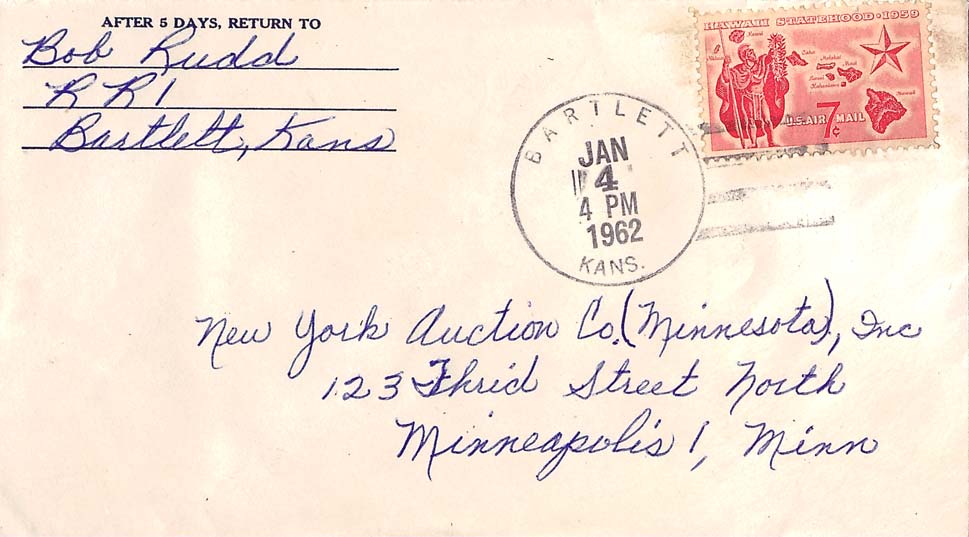 AFTER 5 DAYS, RETURN TO
Bob Rudd
R R 1
Bartlett, Kans
HAWAII STATEHOOD · 1959
Kauai
Oahu
Molokai
Maui
Lanai
Kahoolawe
Hawaii
U.S. AIR MAIL
7¢
BARTLETT
JAN
4
4 PM
1962
KANS.
New York Auction Co. (Minnesota), Inc
123 Thrid Street North
Minneapolis 1, Minn